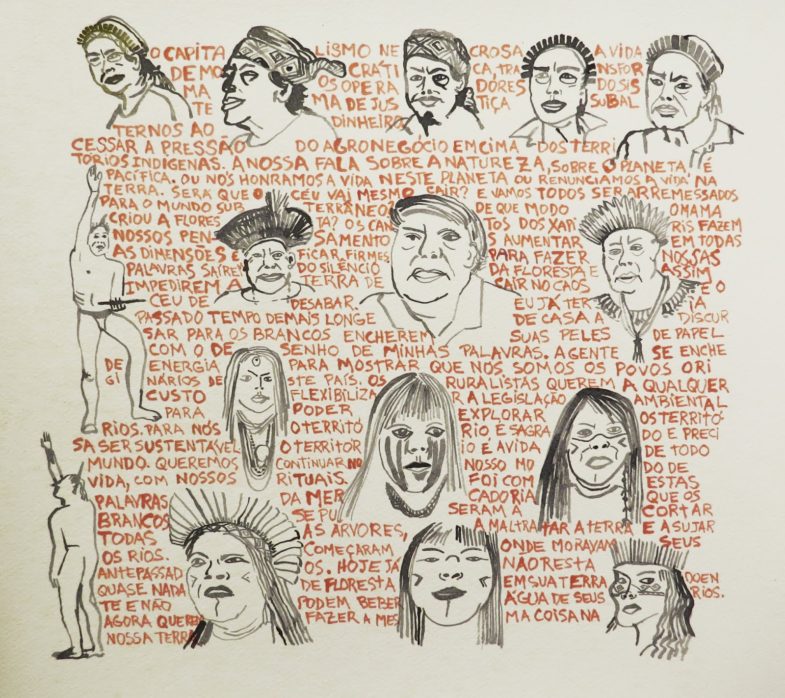 O CAPITA LISMO NE CROSA A VIDA
DEMO CRÁTI CA, TRA NSFOR
MA OS OPERA DORES DO SIS
TE MA DE JUS TIÇA SUBAL
TERNOS AO DINHEIRO
CESSAR A PRESSÃO DO AGRONEGÓCIO EM CIMA DOS TERRI
TÓRIOS INDÍGENAS. A NOSSA FALA SOBRE A NATUREZA, SOBRE O PLANETA, É
PACÍFICA. OU NÓS HONRAMOS A VIDA NESTE PLANETA OU RENUNCIAMOS A VIDA NA
TERRA. SERÁ QUE O CÉU VAI MESMO CAIR? E VAMOS TODOS SER ARREMESSADOS
PARA O MUNDO SUB TERRÂNEO DE QUE MODO OMAMA
CRIOU A FLORES TA? OS CAN TOS DOS XAPI RIS FAZEM
NOSSOS PEN SAMENTO S AUMENTAR EM TODAS
AS DIMENSÕES E FICAR FIRMES PARA FAZER NOSSAS
PALAVRAS SAÍREM DO SILÊNCIO DA FLORESTA E ASSIM
IMPEDIREM A TERRA DE CAIR NO CAOS E O
CEU DE DESABAR. EU JÁ TER IA
PASSADO TEMPO DEMAIS LONGE DE CASA A DISCUR
SAR PARA OS BRANCOS ENCHEREM SUAS PELES DE PAPEL
COM O DE SENHO DE MINHAS PALAVRAS. A GENTE SE ENCHE
DE ENERGIA PARA MOSTRAR QUE NÓS SOMOS OS POVOS ORI
GI NÁRIOS DE STE PAÍS. OS RURALISTAS QUEREM A QUALQUER
CUSTO FLEXIBILIZA R A LEGISLAÇÃO AMBIENTAL
PARA PODER EXPLORAR OS TERRITÓ
RIOS. PARA NÓS O TERRITÓ RIO É SAGRA DO E PRECI
SA SER SUSTENTÁVEL O TERRITÓR IO É A VIDA DE TODO
MUNDO. QUEREMOS CONTINUAR NO NOSSO MO DO DE
VIDA, COM NOSSOS RITUAIS. FOI COM ESTAS
PALAVRAS DA MER CADORIA QUE OS
BRANCOS SE PU SERAM A CORTAR
TODAS AS ÁRVORES, A MALTRATAR A TERRA E A SUJAR
OS RIOS. COMEÇARAM ONDE MORAVAM SEUS
ANTEPASSAD OS. HOJE JÁ NÃO RESTA
QUASE NADA DE FLORESTA EM SUA TERRA DOEN
TE E NÃO PODEM BEBER ÁGUA DE SEUS RIOS.
AGORA QUEREM FAZER A MES MA COISA NA
NOSSA TERRA